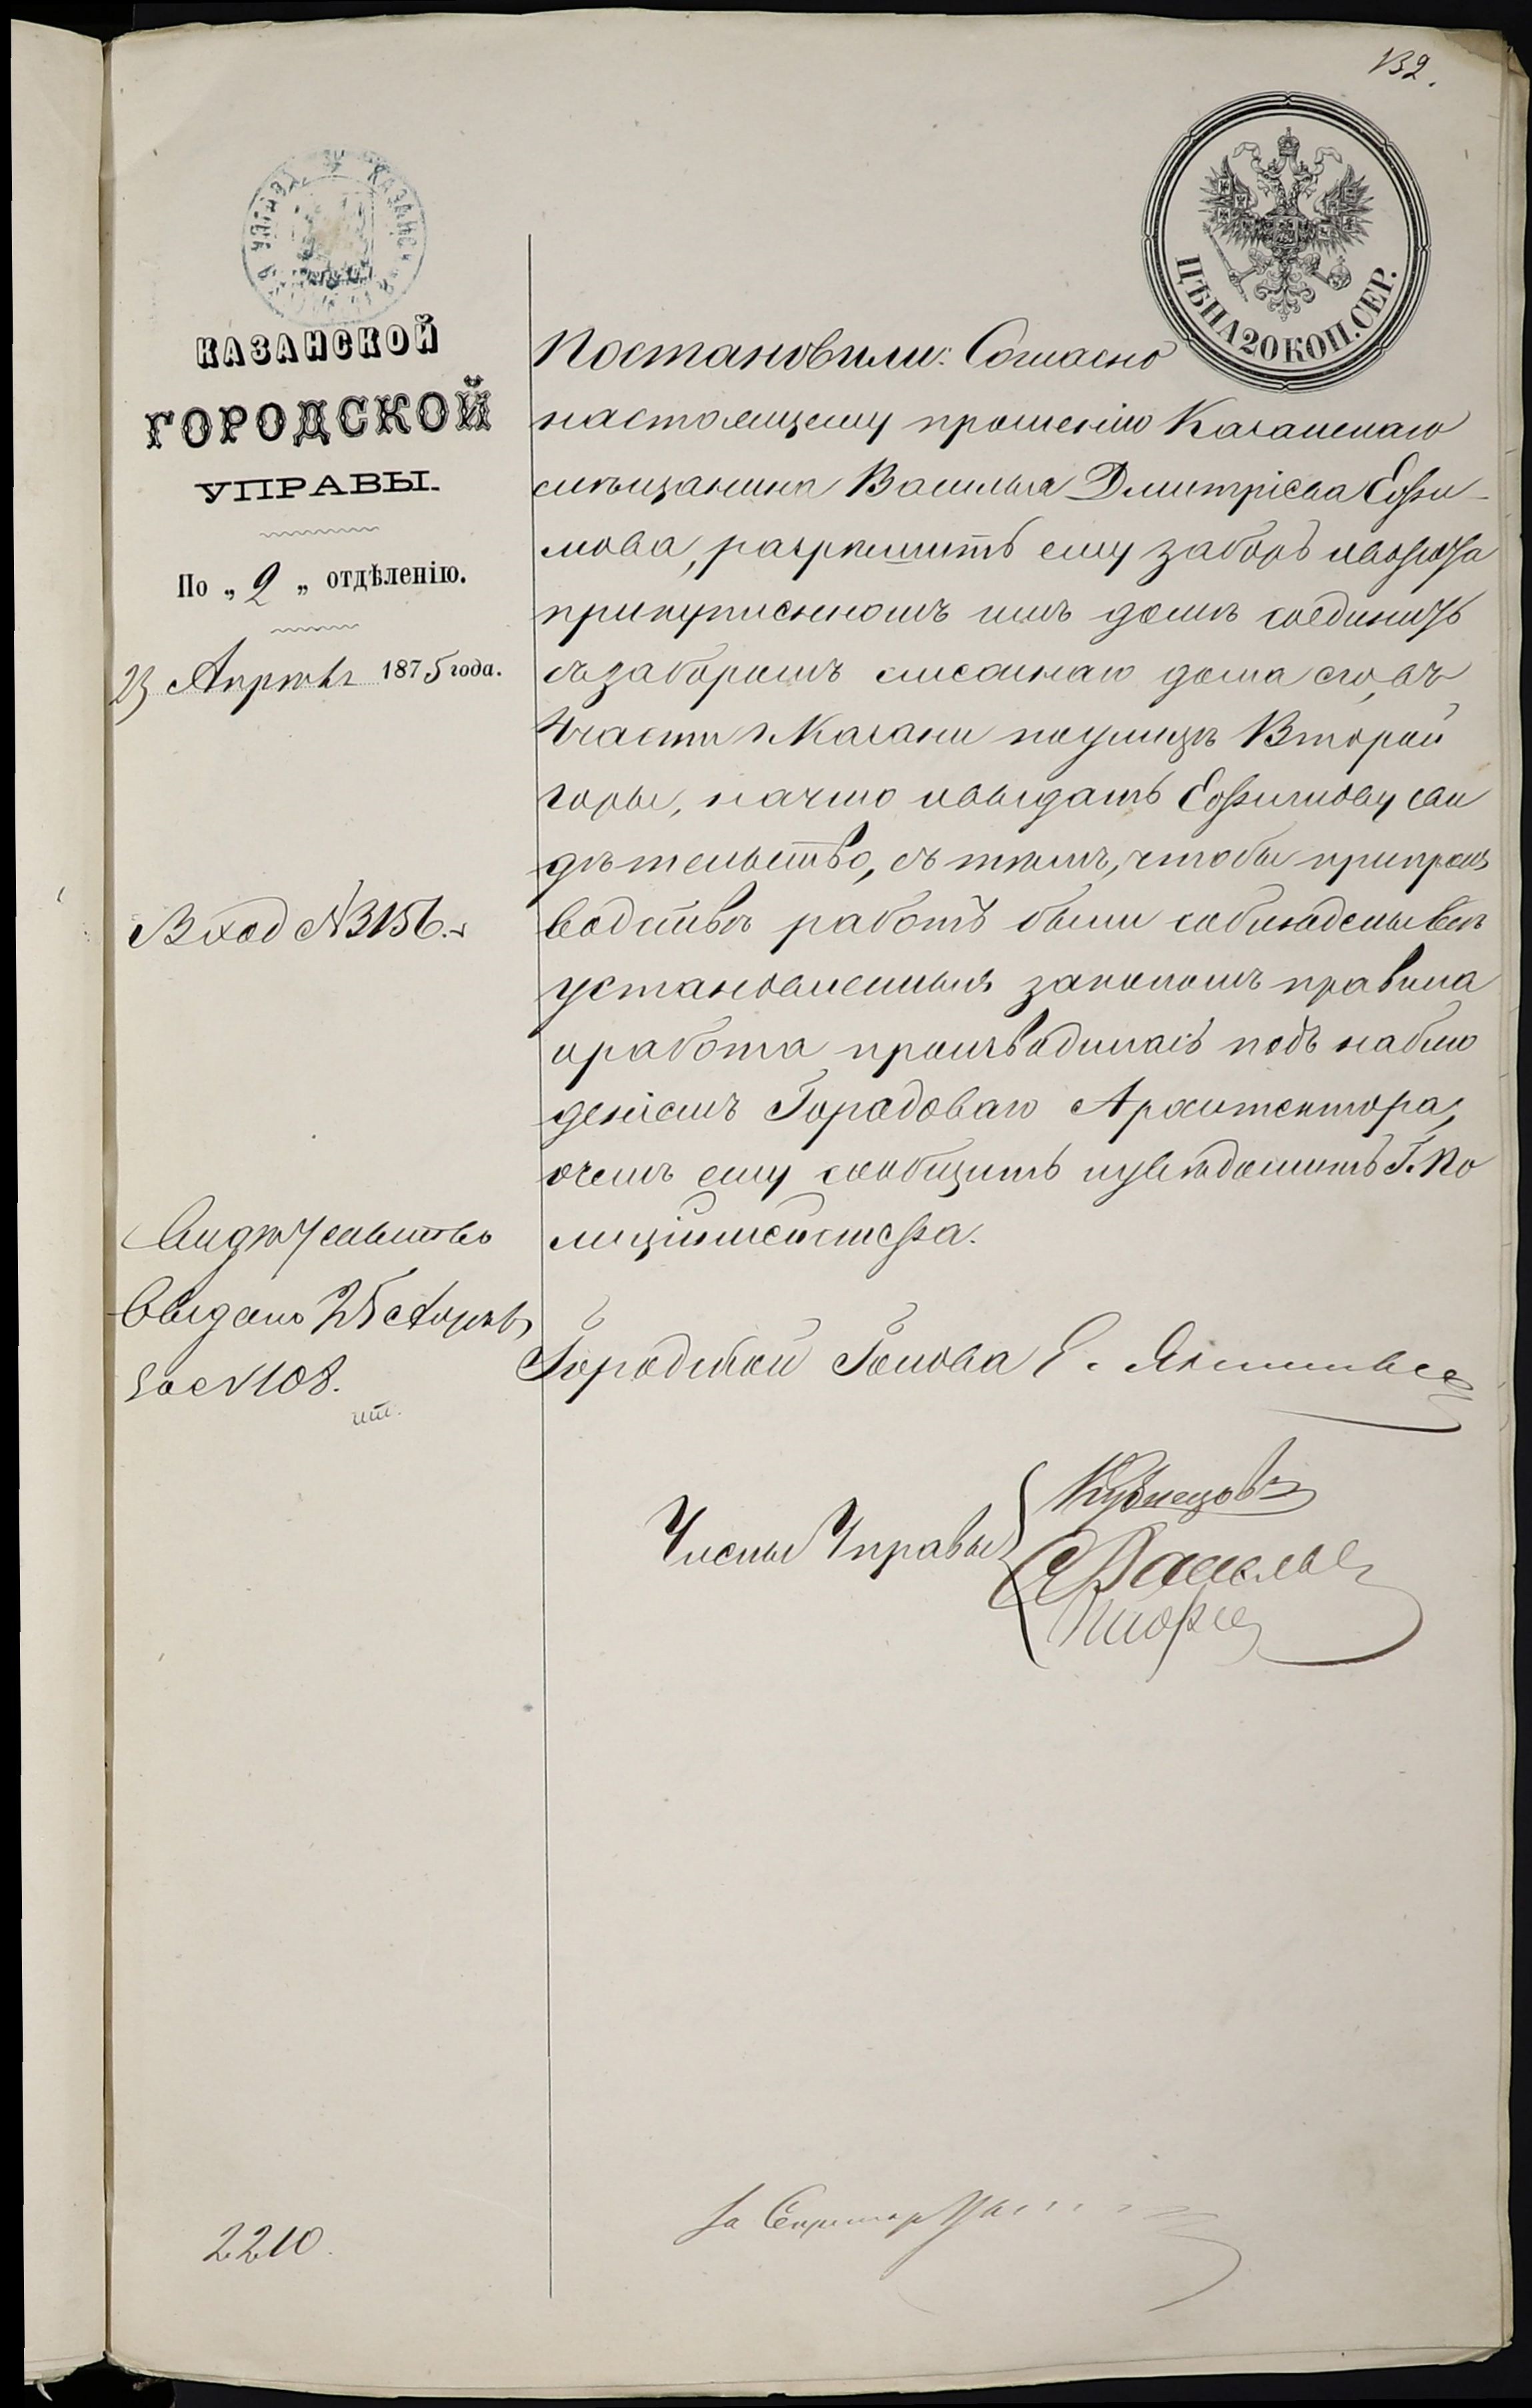 132.
ЦѢНА 20 КОП. СЕР.
КАЗАНСКОЙ
ГОРОДСКОЙ
УПРАВЫ.
По „ 2 „ отдѣленію.
23 Апрѣля 1875 года.
Вход № 3156.
Свидѣтельство
выдано 25 Апрѣля
за № 108.
2210.
Постановили: Согласно
настоящему прошенію Казанскаго
мѣщанина Василья Дмитріева Ефи-
мова, разрѣшить ему заборъ и ворота
при купленномъ имъ домѣ соединить
съ заборомъ смежнаго дома его, въ
части г. Казани по улицѣ Второй
горы, на что и выдать Ефимову сви
дѣтельство, съ тѣмъ, чтобы при произ
водствѣ работъ были соблюдены всѣ
установленныя закономъ правила
и работа производилась подъ наблю
деніемъ Городоваго Архитектора,
о чемъ ему сообщить и увѣдомить Г. По
лиціймейстера.
Городской Голова Е.
Члены Управы
Кузнецовъ
За Секретаря